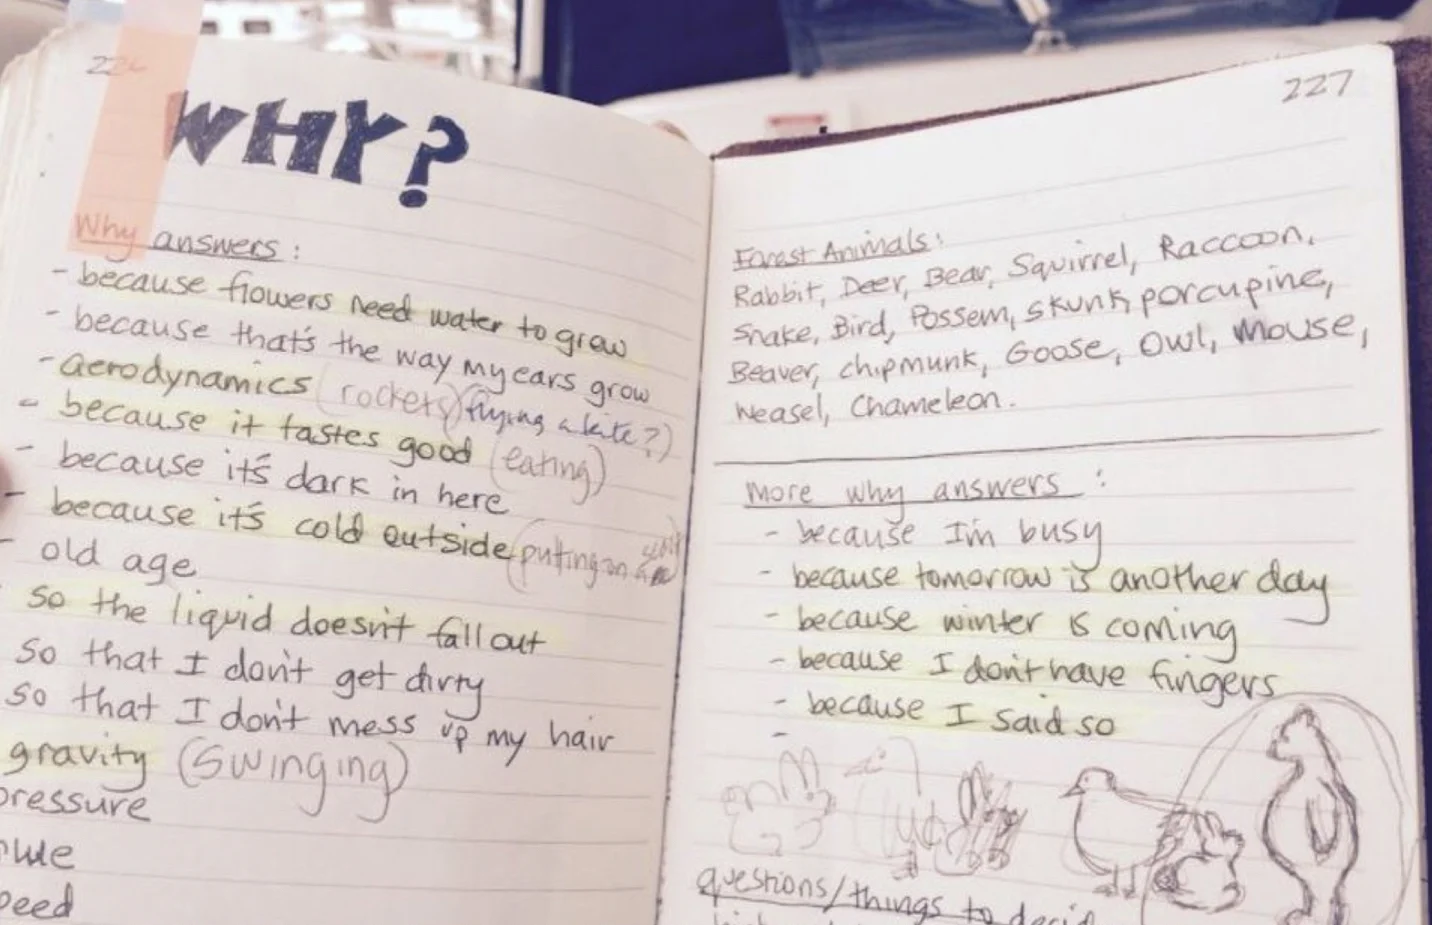 226
WHY?
Why answers:
- because flowers need water to grow
- because that's the way my ears grow
- aerodynamics (rockets) (flying a kite?)
- because it tastes good (eating)
- because it's dark in here
- because it's cold outside (putting on a
- old age
so the liquid doesn't fall out
so that I don't get dirty
so that I don't mess up my hair
gravity (swinging)
pressure
227
Forest Animals:
Rabbit, Deer, Bear, Squirrel, Raccoon,
Snake, Bird, Possem, skunk, porcupine,
Beaver, chipmunk, Goose, Owl, Mouse,
Weasel, Chameleon.
More why answers:
- because I'm busy
- because tomorrow is another day
- because winter is coming
- because I don't have fingers
- because I said so
-
questions/things to